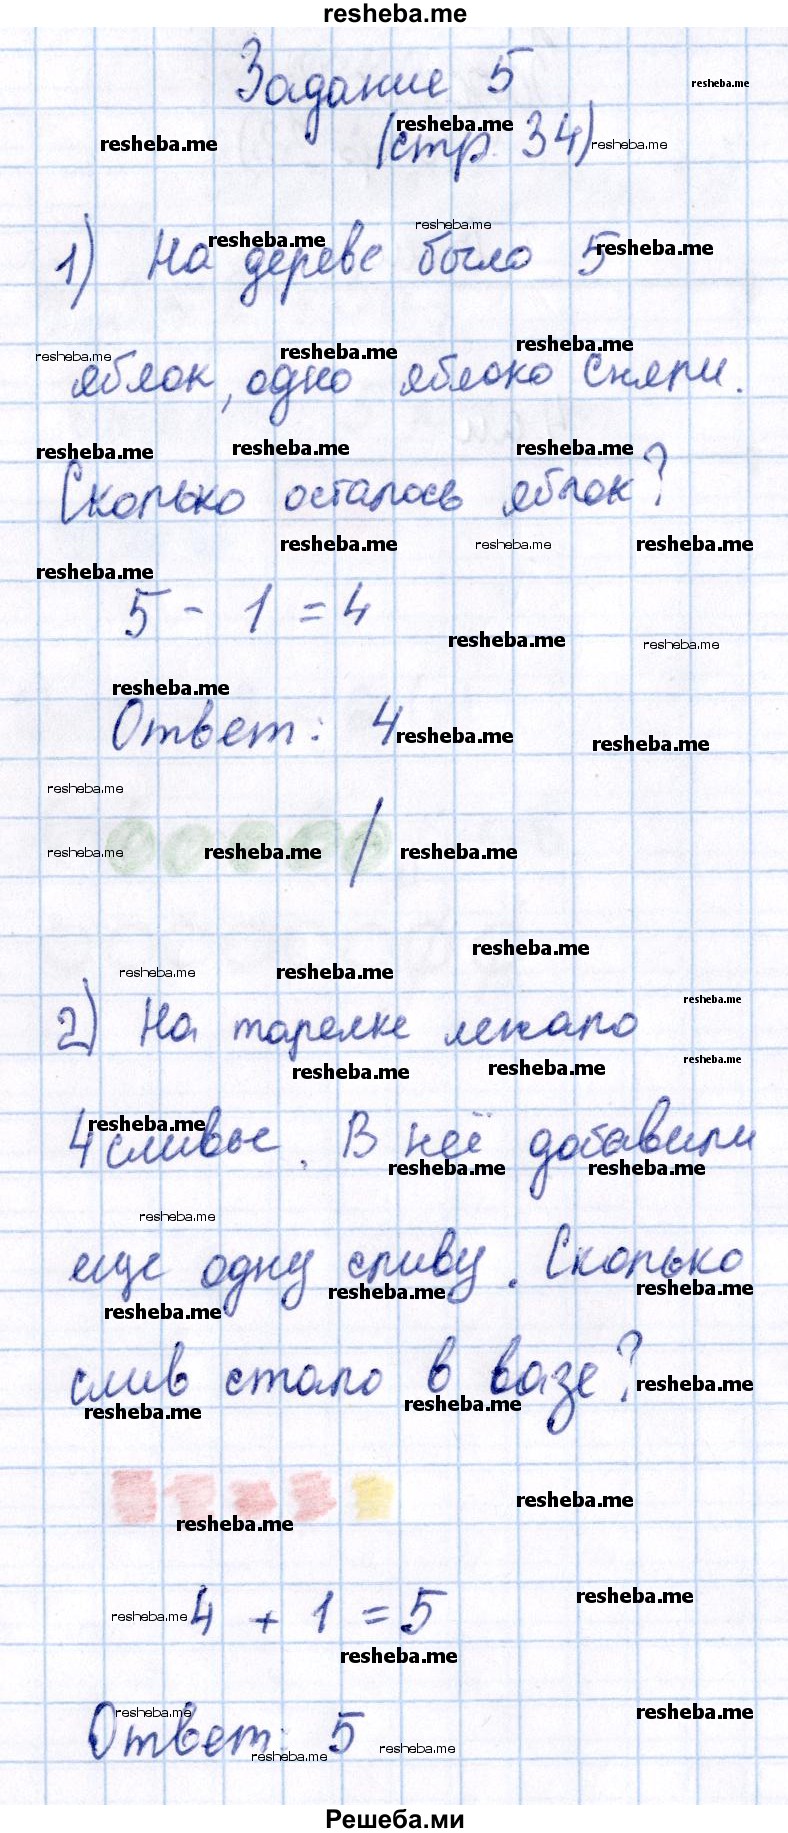 resheba.me
Задание 5
(стр. 34)
1) На дереве было 5
яблок, одно яблоко сняли.
Сколько осталось яблок?
5 - 1 = 4
Ответ: 4
2) На тарелке лежало
4 сливы. В неё добавили
еще одну сливу. Сколько
слив стало в вазе?
4 + 1 = 5
Ответ: 5
Решеба.ми